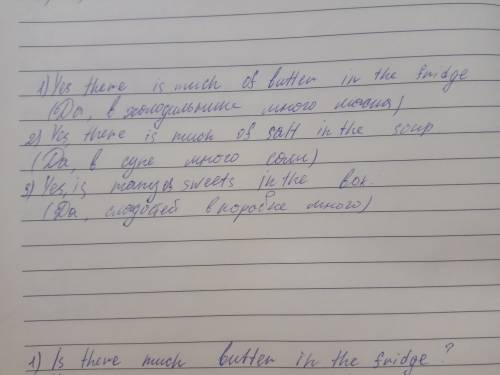 1) Yes there is much of butter in the fridge
(Да, в холодильнике много масла)
2) Yes, there is much of salt in the soup
(Да, в супе много соли)
3) Yes, is many of sweets in the box.
(Да, сладостей в коробке много)
1) Is there much butter in the fridge?